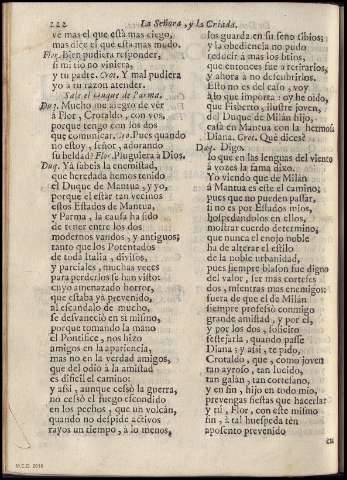 222 La Señora, y la Criada.
ve mas el que està mas ciego,
mas dice el que està mas mudo.
Flor. Bien pudiera responder,
si mi tio no viniera,
y tu padre. Crot. Y mal pudiera
yo à tu razon atender.
Sale el Duque de Parma.
Duq. Mucho me alegro de vèr
à Flor, Crotaldo, con vos,
porque tengo con los dos
que comunicar. Cro. Pues quando
no estoy, señor, adorando
su beldad? Flor. Pluguiera à Dios.
Duq. Yà sabeis la enemistad,
que heredada hemos tenido
el Duque de Mantua, y yo,
porque el estàr tan vecinos
estos Estados de Mantua,
y Parma, la causa ha sido
de tener entre los dos
modernos vandos, y antiguos;
tanto que los Potentados
de toda Italia, divisos,
y parciales, muchas veces
para perderlos se han visto:
cuyo amenazado horror,
que estaba yà prevenido,
al escandalo de mucho,
se desvaneciò en sì mismo,
porque tomando la mano
el Pontifice, nos hizo
amigos en la apariencia,
mas no en la verdad amigos,
que del odio à la amistad
es dificil el camino:
y assi, aunque cessò la guerra,
no cessò el fuego escondido
en los pechos, que un volcàn,
quando no despide activos
rayos un tiempo, à lo menos,
los guarda en su seno tibios;
y la obediencia no pudo
reducir à mas los brios,
que entonces fue à retirarlos,
y ahora à no descubrirlos.
Esto no es del caso, voy
à lo que importa: oy he oido,
que Fisberto, ilustre joven,
del Duque de Milàn hijo,
casa en Mantua con la hermosa
Diana. Crot. Què dices?
Duq. Digo.
lo que en las lenguas del viento
à voces la fama dixo.
Yo viendo que de Milàn
à Mantua es este el camino;
pues que no pueden passar,
si no es por Estados mios,
hospedandolos en ellos,
mostrar cuerdo determino,
que nunca el enojo noble
ha de alterar el estilo
de la noble urbanidad,
pues siempre blason fue digno
del valor, ser mas corteses
dos, mientras mas enemigos:
fuera de que el de Milàn
siempre professò conmigo
grande amistad, y por èl,
y por los dos, solicito
festejarla, quando passe
Diana: y assi, te pido,
Crotaldo, que, como joven
tan ayroso, tan lucido,
tan galàn, tan cortesano,
y en fin, hijo en todo mio,
prevengas fiestas que hacerla:
y tù, Flor, con este mismo
fin, à tal huespeda tèn
aposento prevenido
en